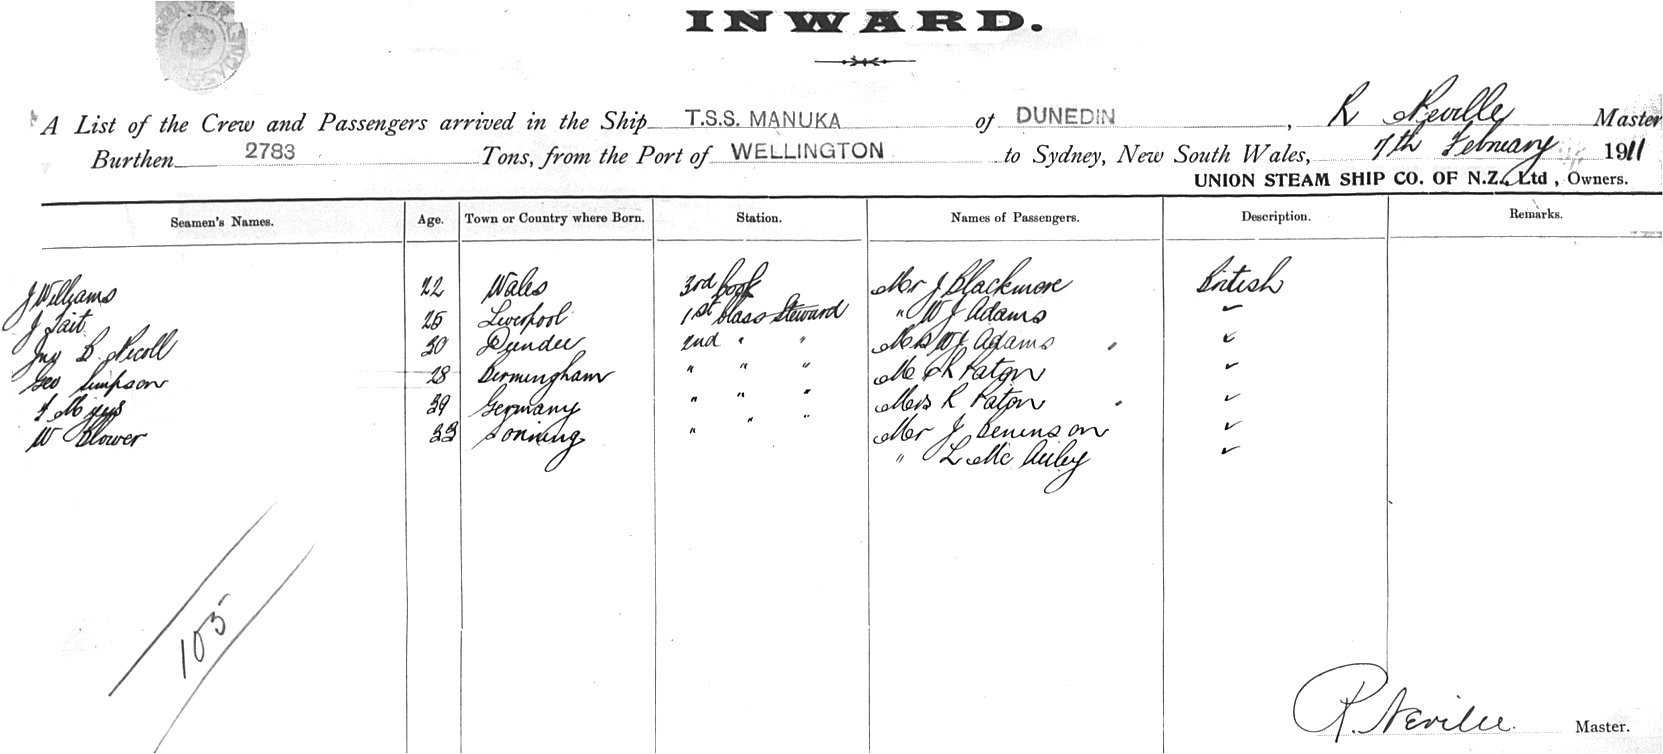 INWARD.
A List of the Crew and Passengers arrived in the Ship T.S.S. MANUKA of DUNEDIN, R Neville Master
Burthen 2783 Tons, from the Port of WELLINGTON to Sydney, New South Wales, 7th February 1911
UNION STEAM SHIP CO. OF N.Z., Ltd, Owners.
Seamen's Names. Age. Town or Country where Born. Station. Names of Passengers. Description. Remarks.
J Williams 22 Wales 3rd Cook Mr J Blackmore British
J Tait 25 Liverpool 1st Class Steward " W J Adams ✓
Jno B Nicoll 30 Dundee 2nd " " Mrs W J Adams ✓
Geo Simpson 28 Birmingham " " " Mr R Paton ✓
39 Germany " " " Mrs R Paton ✓
W Blower 33 Sonning " " Mr J Benenson ✓
" L McAuley ✓
105
R. Neville. Master.